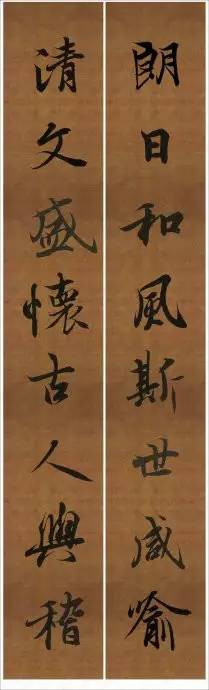 朗日和風斯世咸喻
清文盛懷古人興稽